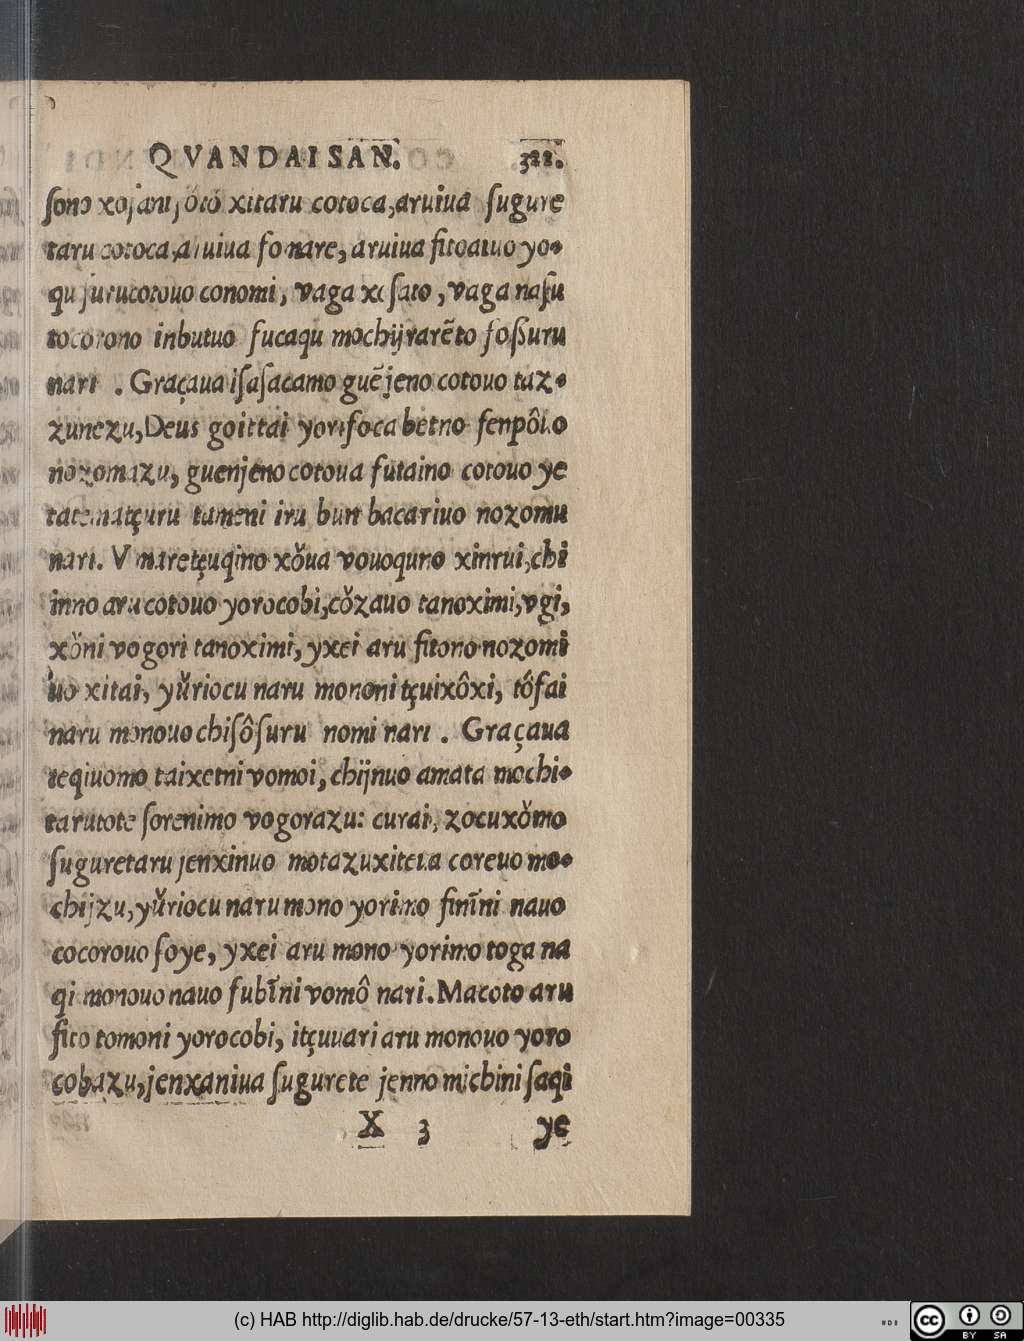 QVANDAI SAN. 322.
ſono xojani jŏtŏ xitaru cotoca, aruiua ſugure
taru cotoca, aruiua fonare, aruiua fitoatuo yo-
qu jurucotouo conomi, vaga xeſato, vaga naſu
tocorono inbutuo fucaqu mochijrarẽto foſſuru
nari . Graçaua iſaſacamo guẽjeno cotouo taz-
zunezu, Deus goittai yorifoca betno fenpôuo
nozomazu, guenjeno cotoua futaino cotouo ye
tatematçuru tameni iru bun bacariuo nozomu
nari. Vmaretçuqino xŏua vouoquno xinrui, chi
inno aru cotouo yorocobi, cŏzauo tanoximi, vgi,
xŏni vogori tanoximi, yxei aru fitono nozomi
uo xitai, yŭriocu naru mononi tçuixôxi, tôfai
naru monouo chiſôſuru nomi nari . Graçaua
teqiuomo taixetni vomoi, chijnuo amata mochi-
tarutote ſorenimo vogorazu: curai, zocuxŏmo
ſuguretaru jenxinuo motazuxiteua coreuo mo-
chijzu, yŭriocu naru mono yorimo finĩni nauo
cocorouo ſoye, yxei aru mono yorimo toga na
qi monouo nauo fubĩni vomô nari. Macoto aru
fito tomoni yorocobi, itçuuari aru monouo yoro
cobazu, jenxaniua ſugurete jenno michini ſaqi
X 3 ye
(c) HAB http://diglib.hab.de/drucke/57-13-eth/start.htm?image=00335
cc BY SA